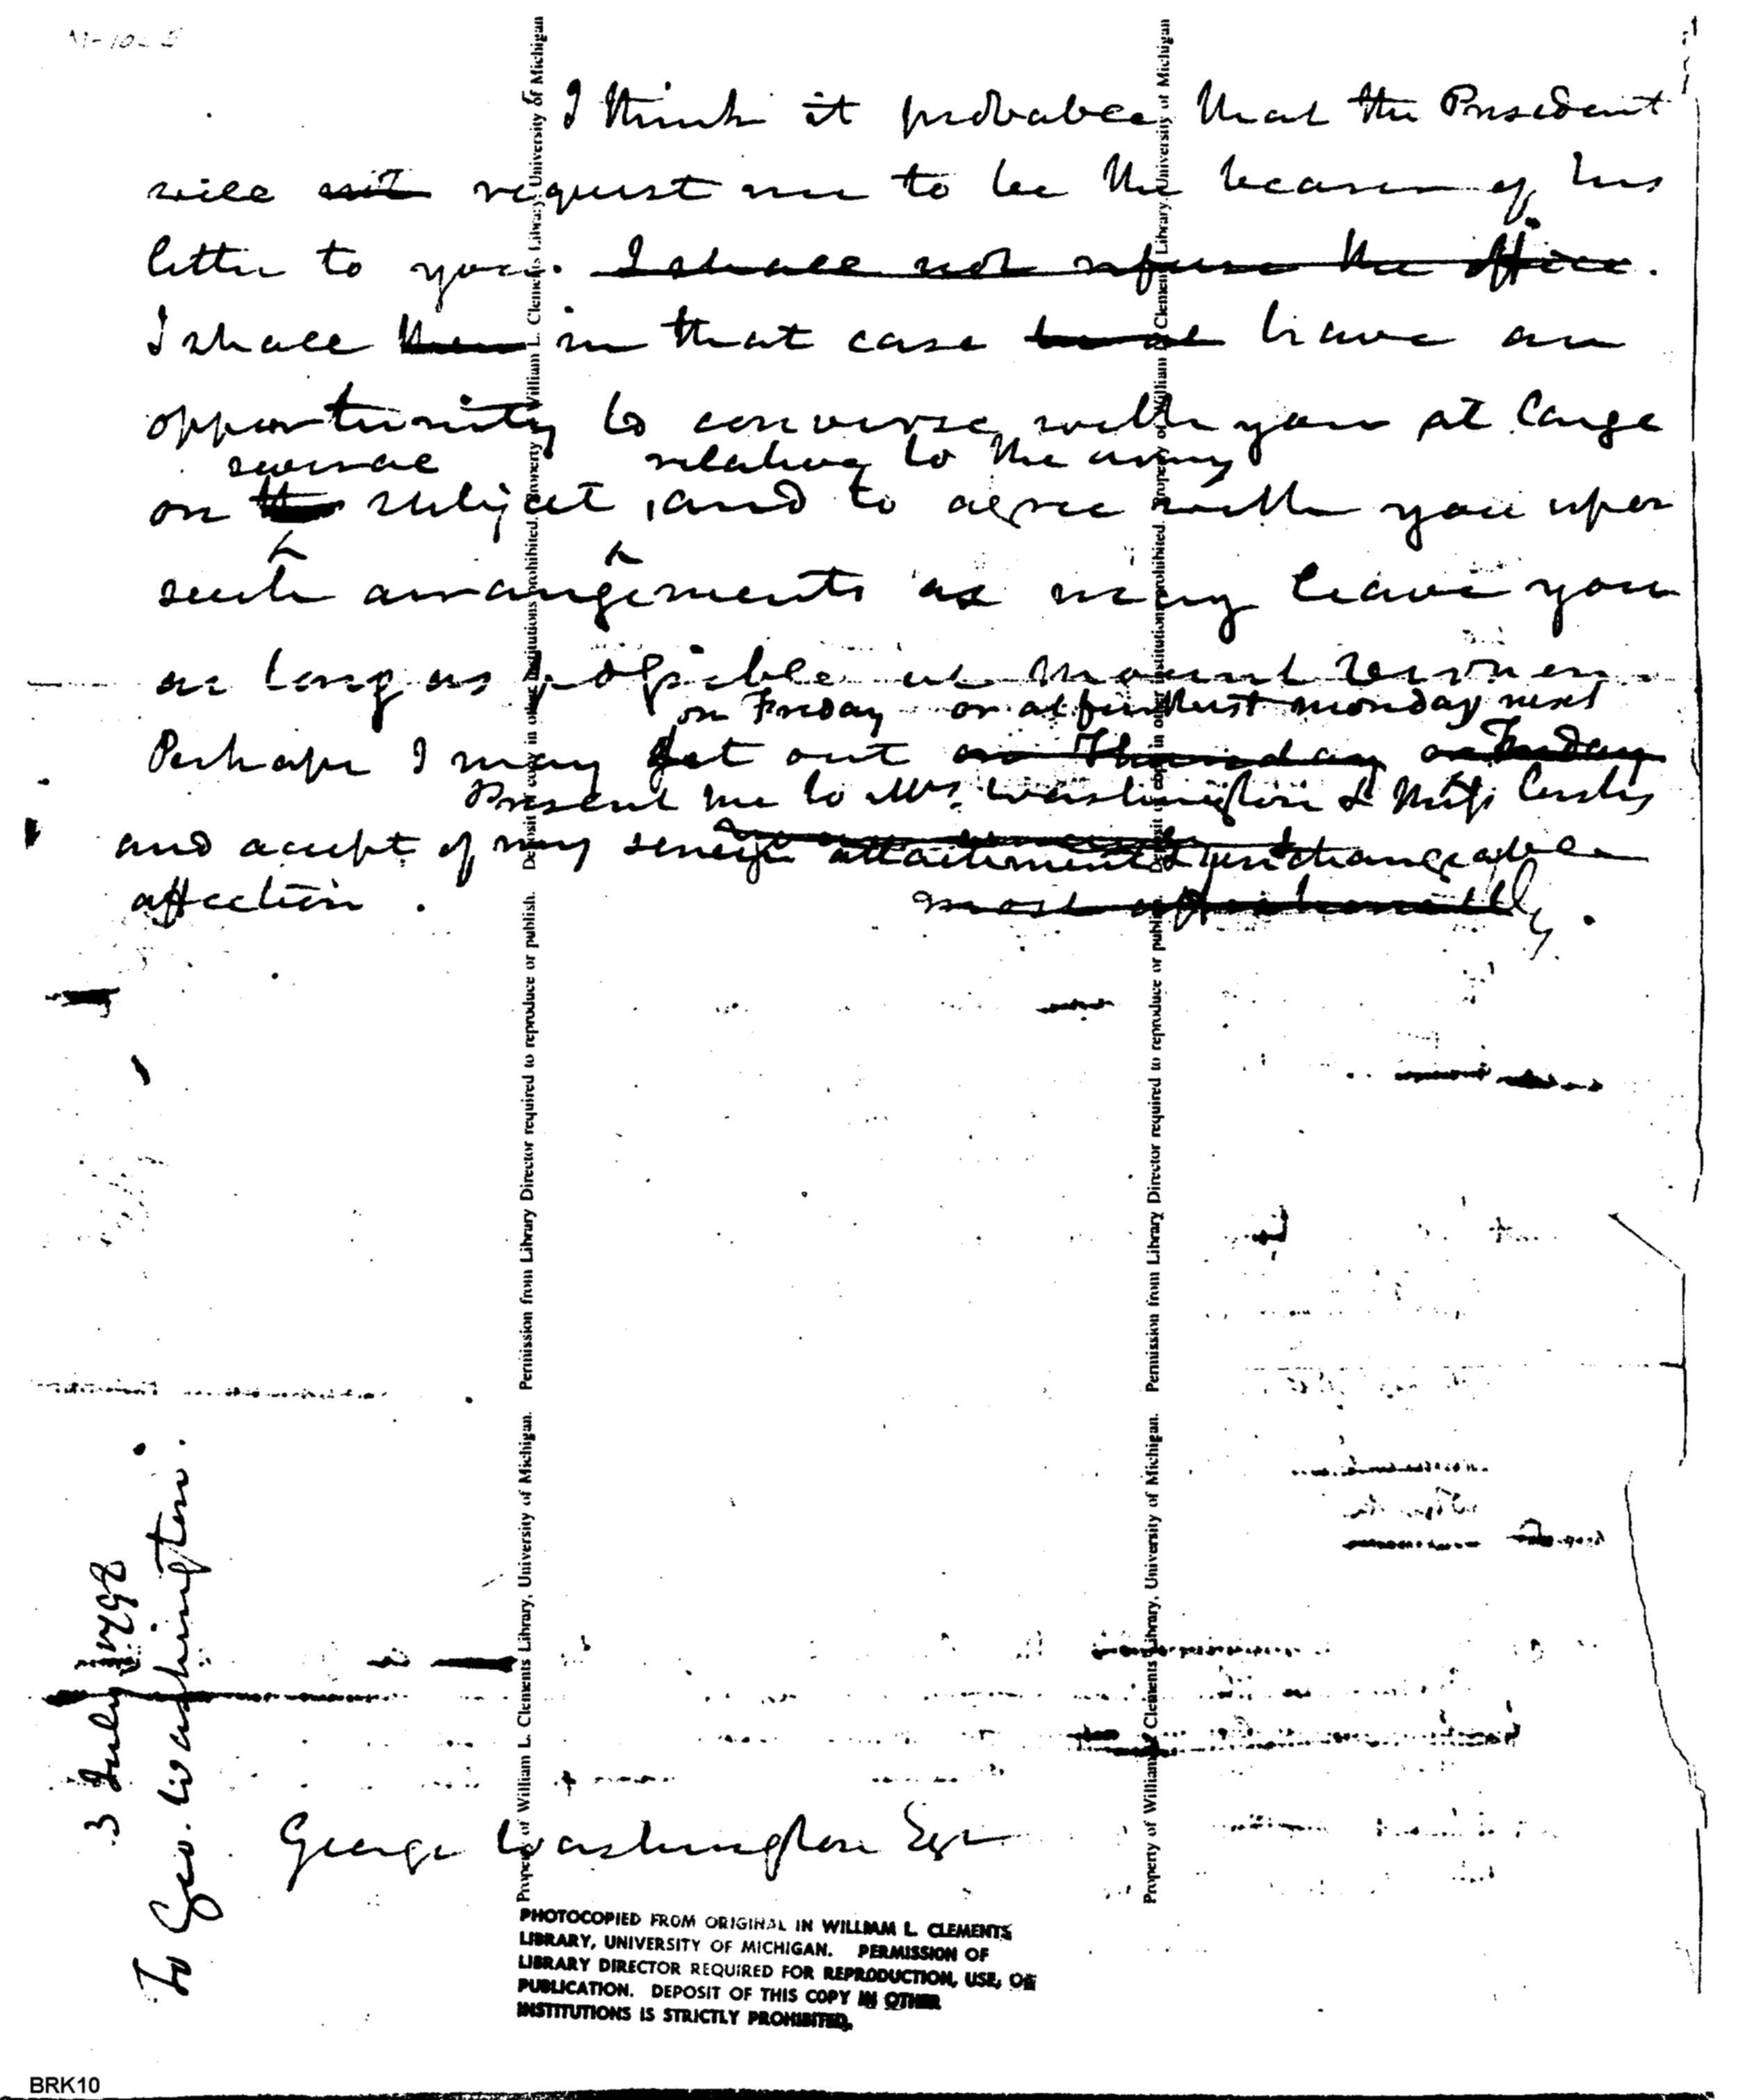 I think it probable that the President
will not request me to be the bearer of his
letter to you. I shall not refuse the office.
I shall then in that case have an
opportunity to converse with you at large
several relative to the army
on the subject, and to agree with you upon
such arrangements as may leave you
as long as possible at Mount Vernon.
on Friday or at furthest monday next
Perhaps I may set out on Thursday or Friday
Present me to Mrs. Washington & Miss Custis
and accept of my attachment & unchangeable
affection. most affectionately.
3 July 1798
To Geo. Washington.
George Washington Esqr
Property of William L. Clements Library, University of Michigan. Permission from Library Director required to reproduce or publish. Deposit of copy in other institutions prohibited. Property of William L. Clements Library, University of Michigan
Property of William L. Clements Library, University of Michigan. Permission from Library Director required to reproduce or publish. Deposit of copy in other institutions prohibited. Property of William L. Clements Library, University of Michigan
PHOTOCOPIED FROM ORIGINAL IN WILLIAM L. CLEMENTS
LIBRARY, UNIVERSITY OF MICHIGAN. PERMISSION OF
LIBRARY DIRECTOR REQUIRED FOR REPRODUCTION, USE, OR
PUBLICATION. DEPOSIT OF THIS COPY IN OTHER
INSTITUTIONS IS STRICTLY PROHIBITED.
BRK10